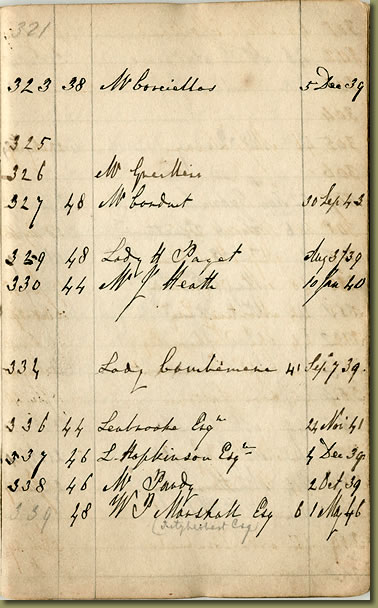 321
323 38 Mr 5 Dec 39
325
326 Mr
327 48 Mr Conduit 30 Sep 43
329 48 Lady H Paget Aug 31 39
330 44 Mr J Heath 10 Jan 40
334 Lady Combermere 41 Sep 7 39
336 44 Esqre 24 Nov 41
337 46 L. Hopkinson Esqre 4 Dec 39
338 46 Mr Purdy 2 Oct 39
339 48 W P Marshall Esq 6 1 May 46
(Fitzherbert Esq)